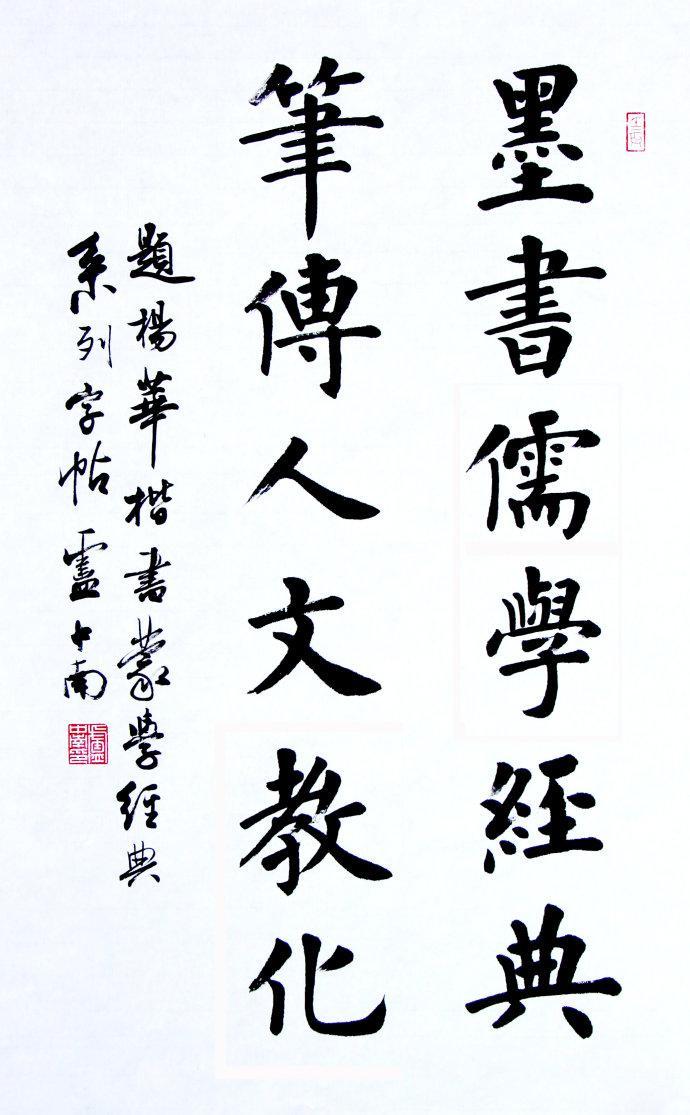 墨書儒學經典
筆傳人文教化
題楊華楷书蒙學經典
系列字帖盧中南